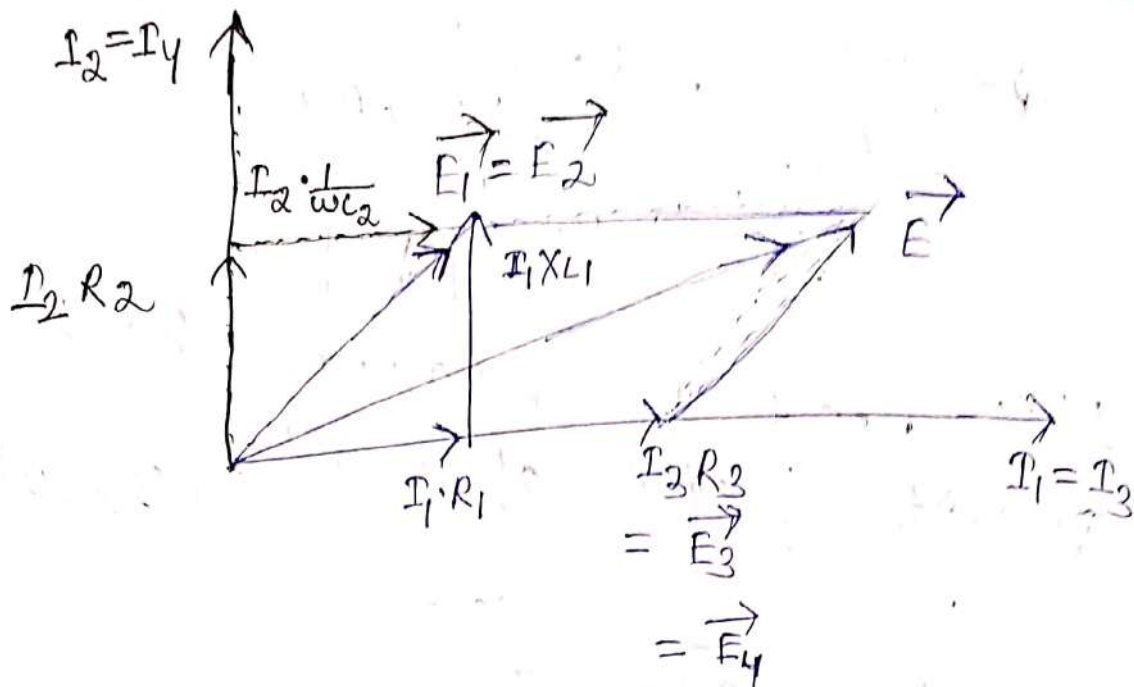 I₂ = I₄
I₂ · 1/ωC₂
E₁⃗ = E₂⃗
E⃗
I₁XL₁
I₂ R₂
I₁·R₁
I₃ R₃
= E₃⃗
= E₄⃗
I₁ = I₃